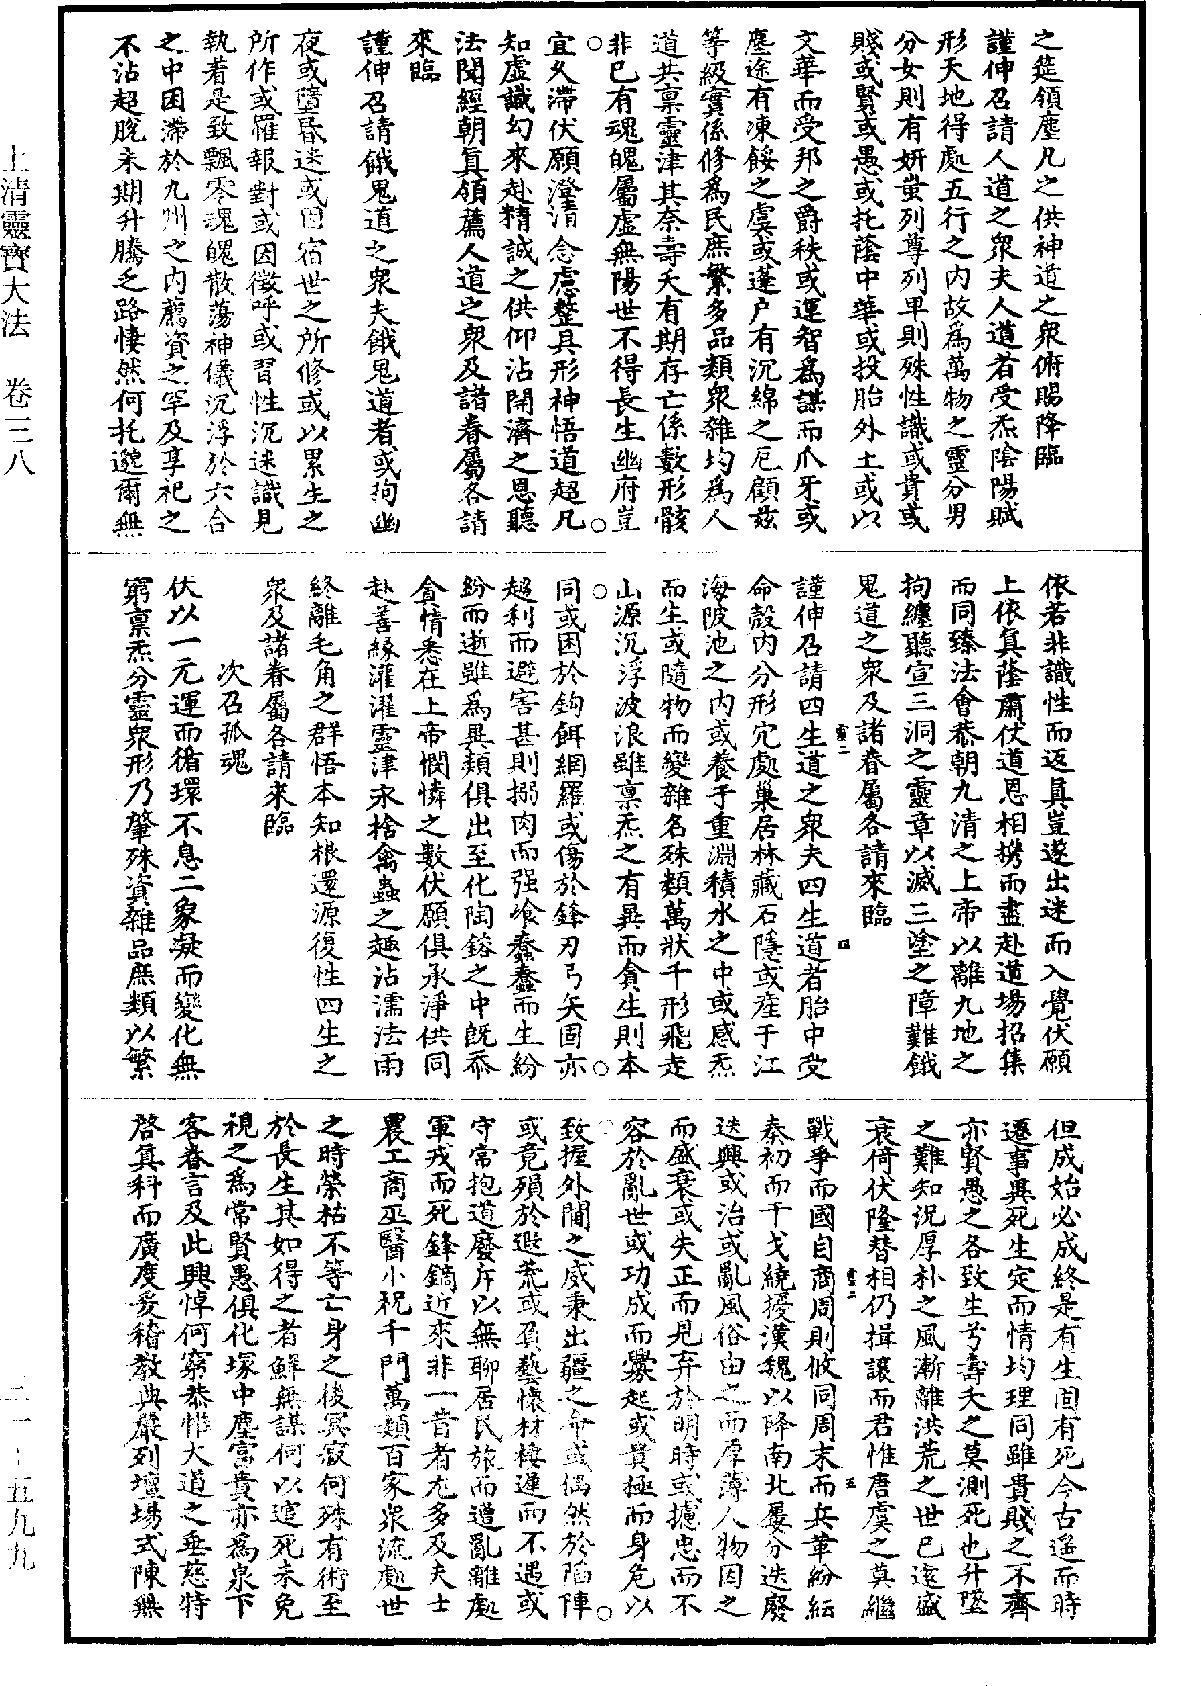 之筵領塵凡之供神道之衆俯賜降臨
謹伸召請人道之衆夫人道者受炁陰陽賦
形天地得處五行之内故爲萬物之靈分男
分女則有妍蚩列尊列卑則殊性識或貴或
賤或賢或愚或托蔭中華或投胎外土或以
文華而受邦之爵秩或運智爲謀而爪牙或
塵途有凍餒之虞或蓬户有沉綿之厄顧兹
等級實係修爲民庶繁多品類衆雜均爲人
道共禀靈津其奈壽夭有期存亡係數形骸
非已有魂魄屬虚無陽世不得長生幽府豈
宜久滯伏願澄清念慮整具形神悟道超凡
知虚識幻來赴精誠之供仰沾開濟之恩聽
法聞經朝真領薦人道之衆及諸眷屬各請
來臨
謹伸召請餓鬼道之衆夫餓鬼道者或拘幽
夜或墮昏迷或因宿世之所修或以累生之
所作或罹報對或因徵呼或習性沉迷識見
執著是致飄零魂魄散蕩神儀沉浮於六合
之中困滯於九州之内薦資之罕及享祀之
不沾超脱未期升騰乏路悽然何托邈爾無
依若非識性而返真豈遂出迷而入覺伏願
上依真蔭肅伏道恩相携而盡赴道場招集
而同臻法會恭朝九清之上帝以離九地之
拘纏聽宣三洞之靈章以滅三塗之障難餓
鬼道之衆及諸眷屬各請來臨
謹伸召請四生道之衆夫四生道者胎中受
命殼内分形穴處巢居林藏石隱或産于江
海陂池之内或養于重淵積水之中或感炁
而生或隨物而變雜名殊類萬狀千形飛走
山源沉浮波浪雖禀炁之有異而貪生則本
同或困於鈎餌網羅或傷於鋒刃弓矢固亦
趨利而避害甚則搦肉而强飡蠢蠢而生紛
紛而逝雖爲異類俱出至化陶鎔之中既忝
含情悉在上帝憫憐之數伏願俱承淨供同
赴善緣濯濯靈津永捨禽蟲之趣沾濡法雨
終離毛角之群悟本知根還源復性四生之
衆及諸眷屬各請來臨
次召孤魂
伏以一元運而循環不息二象凝而變化無
窮禀炁分靈衆形乃肇殊資雜品庶類以繁
但成始必成終是有生固有死今古遥而時
遷事異死生定而情均理同雖貴賤之不齊
亦賢愚之各致生兮壽夭之莫測死也升墜
之難知況厚朴之風漸離洪荒之世已遠盛
衰倚伏隆替相仍揖讓而君惟唐虞之莫繼
戰爭而國自商周則攸同周末而兵革紛紜
秦初而干戈繞擾漢魏以降南北屢分迭廢
迭興或治或亂風俗由之而厚薄人物因之
而盛衰或失正而見弃於明時或攄忠而不
容於亂世或功成而釁起或貴極而身危以
致握外閫之威秉出疆之命或偶然於陷陣
或竟殞於遐荒或負藝懷材棲遲而不遇或
守常抱道廢斥以無聊居民旅而遭亂離處
軍戎而死鋒鏑近來非一昔者尤多及夫士
農工商巫醫小祝千門萬類百家衆流處世
之時榮枯不等亡身之後冥寂何殊有術至
於長生其如得之者鮮無謀何以逭死未免
視之爲常賢愚俱化塚中塵富貴亦爲泉下
客眷言及此興悼何窮恭惟大道之垂慈特
啓真科而廣度爰稽教典嚴列壇場式陳無
上清靈寶大法　卷三八